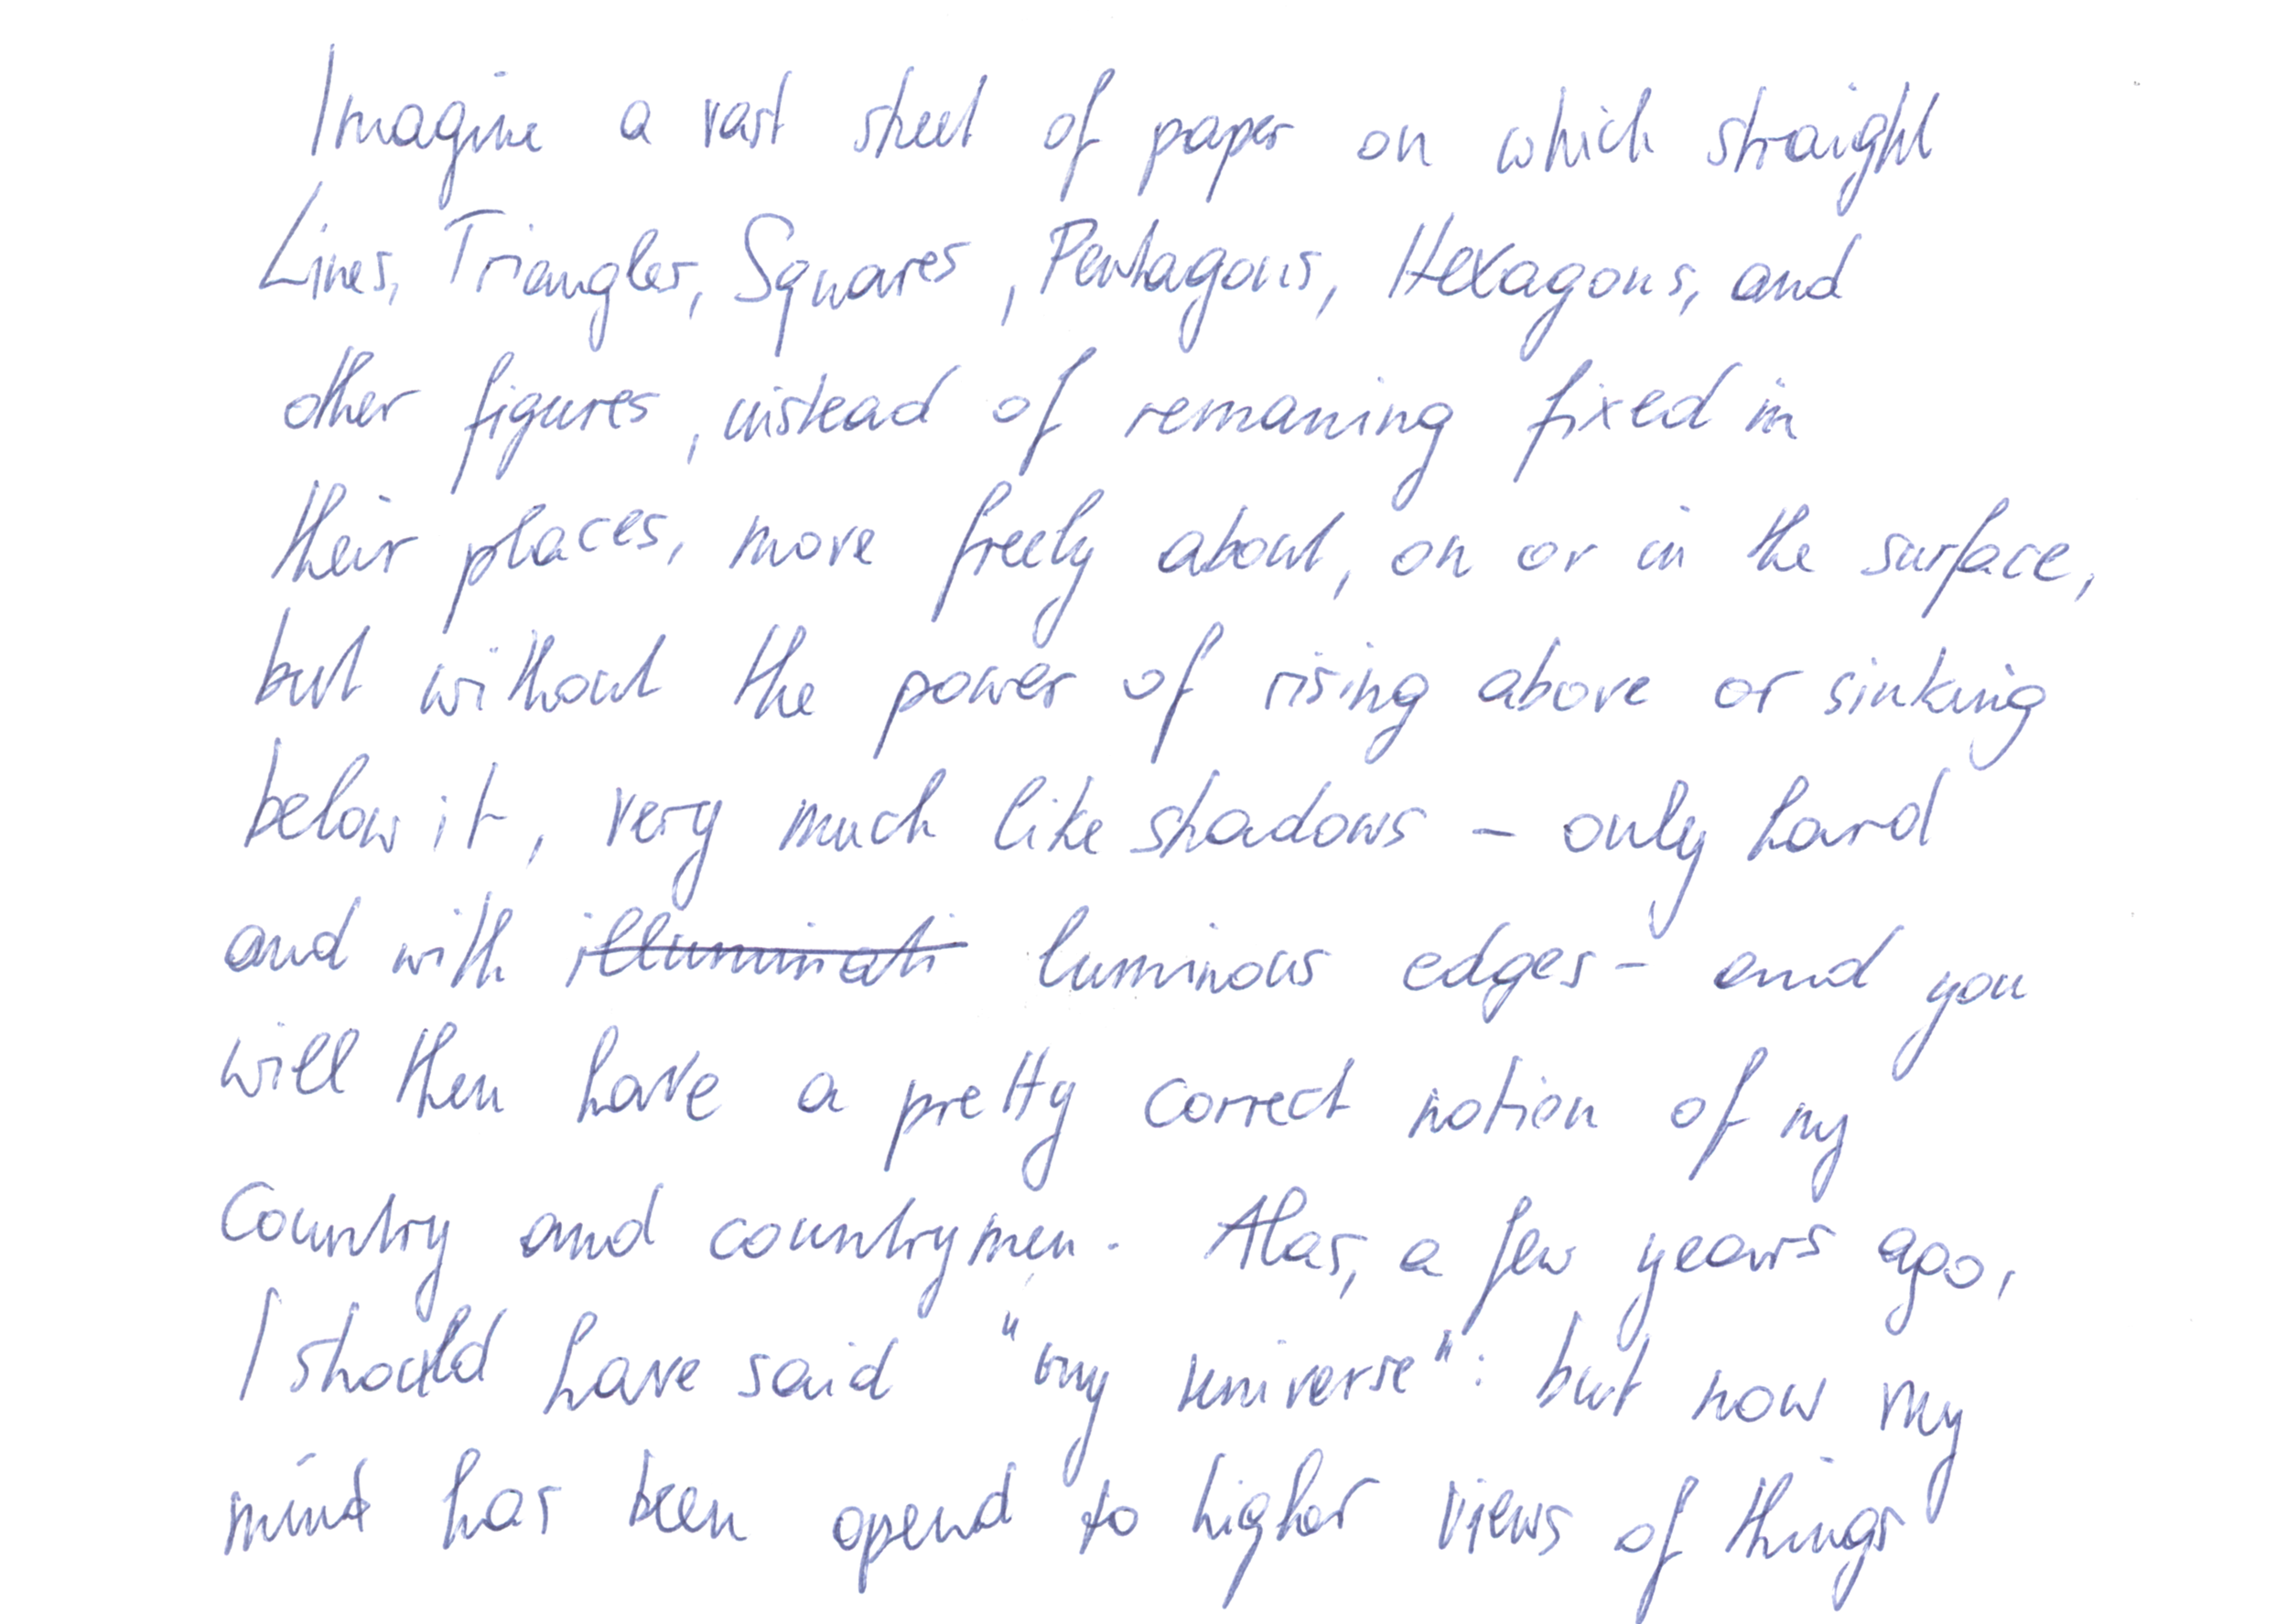 Imagine a vast sheet of paper on which straight
Lines, Triangles, Squares, Pentagons, Hexagons, and
other figures, instead of remaning fixed in
their places, move freely about, on or in the surface,
but without the power of rising above or sinking
below it, very much like shadows – only hard
and with illuminati luminous edges – and you
will then have a pretty correct notion of my
Country and countrymen. Alas, a few years ago,
I should have said "my universe": but now my
mind has been opend to higher views of things